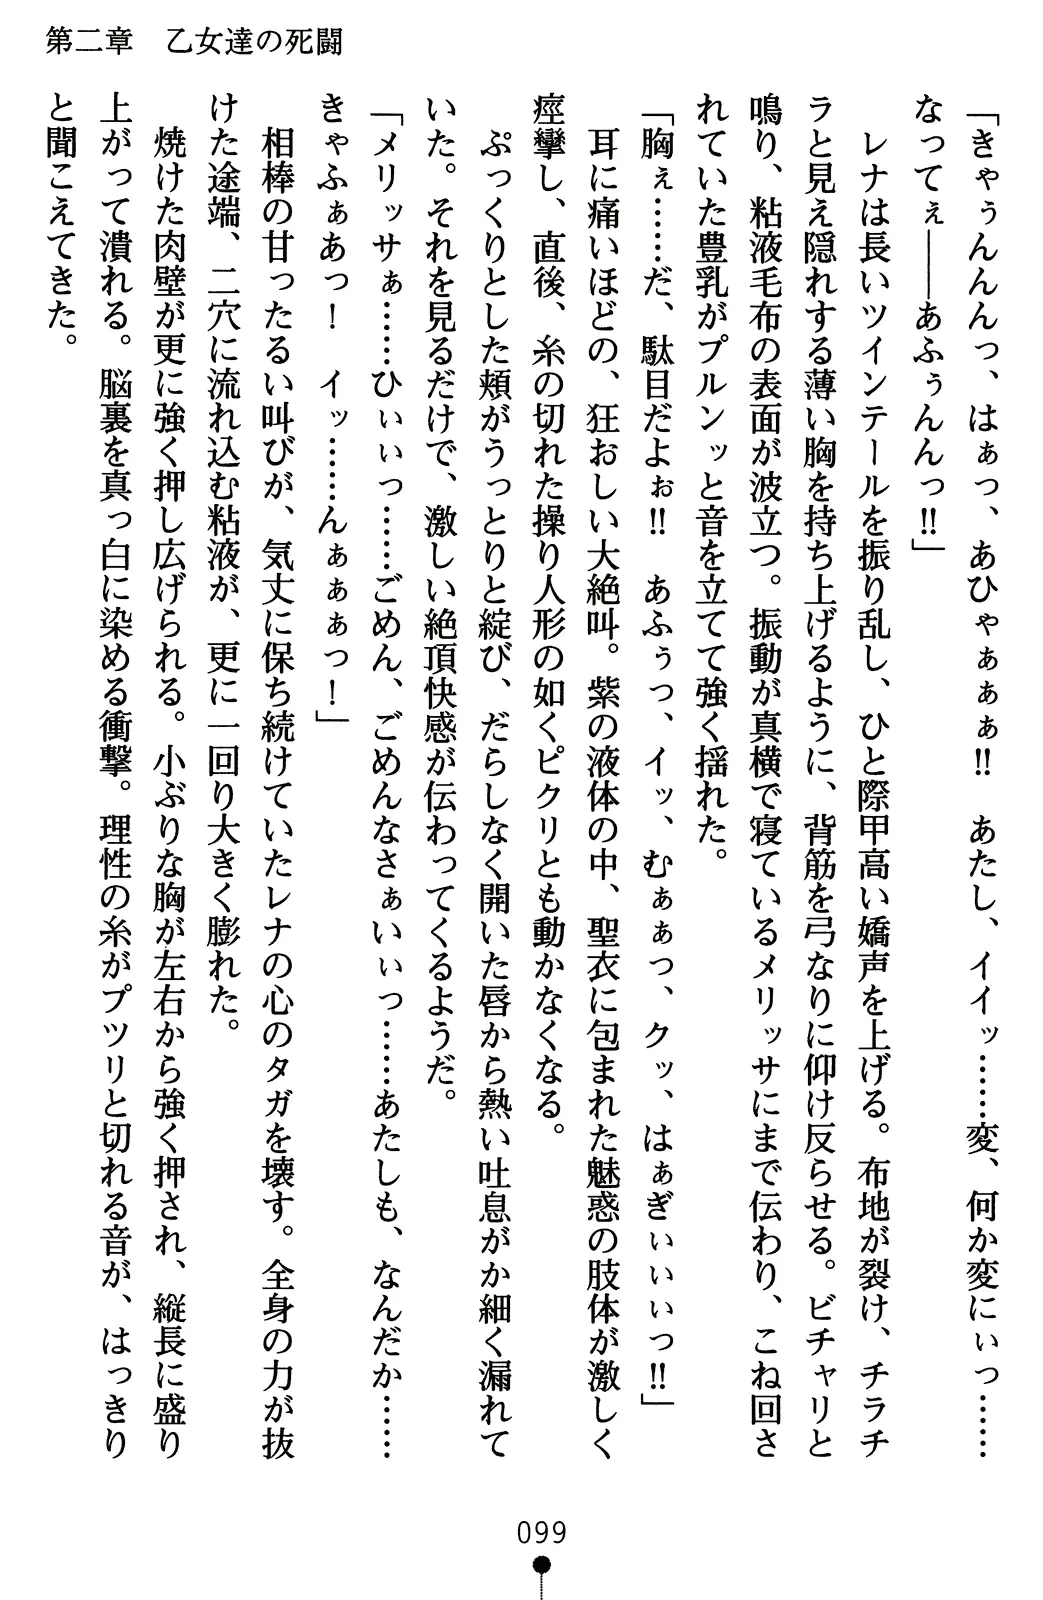 第二章　乙女達の死闘
「きゃぅんんんっ、はぁっ、あひゃぁぁぁ‼　あたし、イイッ……変、何か変にぃっ……
なってぇ――あふぅんんっ‼」
　レナは長いツインテールを振り乱し、ひと際甲高い嬌声を上げる。布地が裂け、チラチ
ラと見え隠れする薄い胸を持ち上げるように、背筋を弓なりに仰け反らせる。ビチャリと
鳴り、粘液毛布の表面が波立つ。振動が真横で寝ているメリッサにまで伝わり、こね回さ
れていた豊乳がプルンッと音を立てて強く揺れた。
「胸ぇ……だ、駄目だよぉ‼　あふぅっ、イッ、むぁぁっ、クッ、はぁぎぃぃぃっ‼」
　耳に痛いほどの、狂おしい大絶叫。紫の液体の中、聖衣に包まれた魅惑の肢体が激しく
痙攣し、直後、糸の切れた操り人形の如くピクリとも動かなくなる。
　ぷっくりとした頬がうっとりと綻び、だらしなく開いた唇から熱い吐息がか細く漏れて
いた。それを見るだけで、激しい絶頂快感が伝わってくるようだ。
「メリッサぁ……ひぃぃっ……ごめん、ごめんなさぁいぃっ……あたしも、なんだか……
きゃふぁあっ！　イッ……んぁぁぁっ！」
　相棒の甘ったるい叫びが、気丈に保ち続けていたレナの心のタガを壊す。全身の力が抜
けた途端、二穴に流れ込む粘液が、更に一回り大きく膨れた。
　焼けた肉壁が更に強く押し広げられる。小ぶりな胸が左右から強く押され、縦長に盛り
上がって潰れる。脳裏を真っ白に染める衝撃。理性の糸がプツリと切れる音が、はっきり
と聞こえてきた。
099